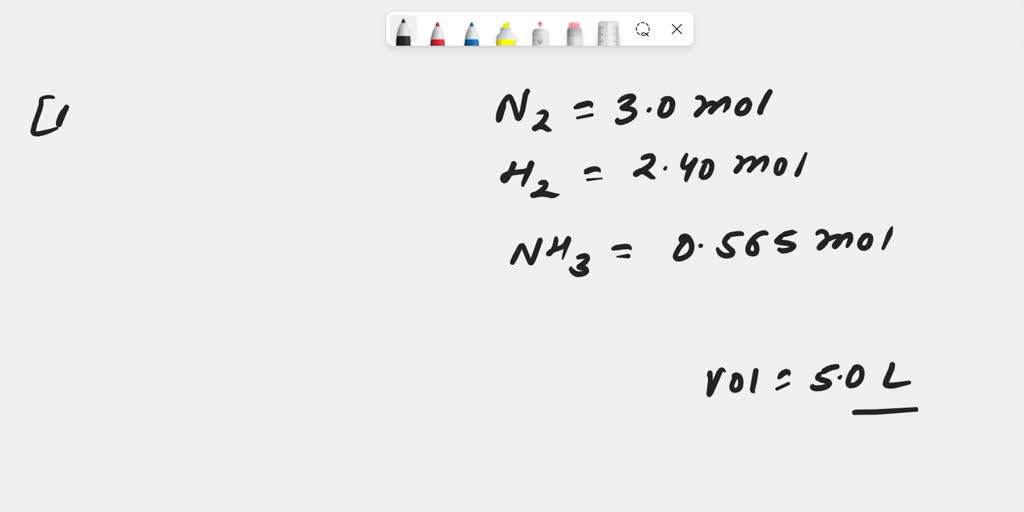 [
N2 = 3.0 mol
H2 = 2.40 mol
NH3 = 0.565 mol
Vol = 5.0 L